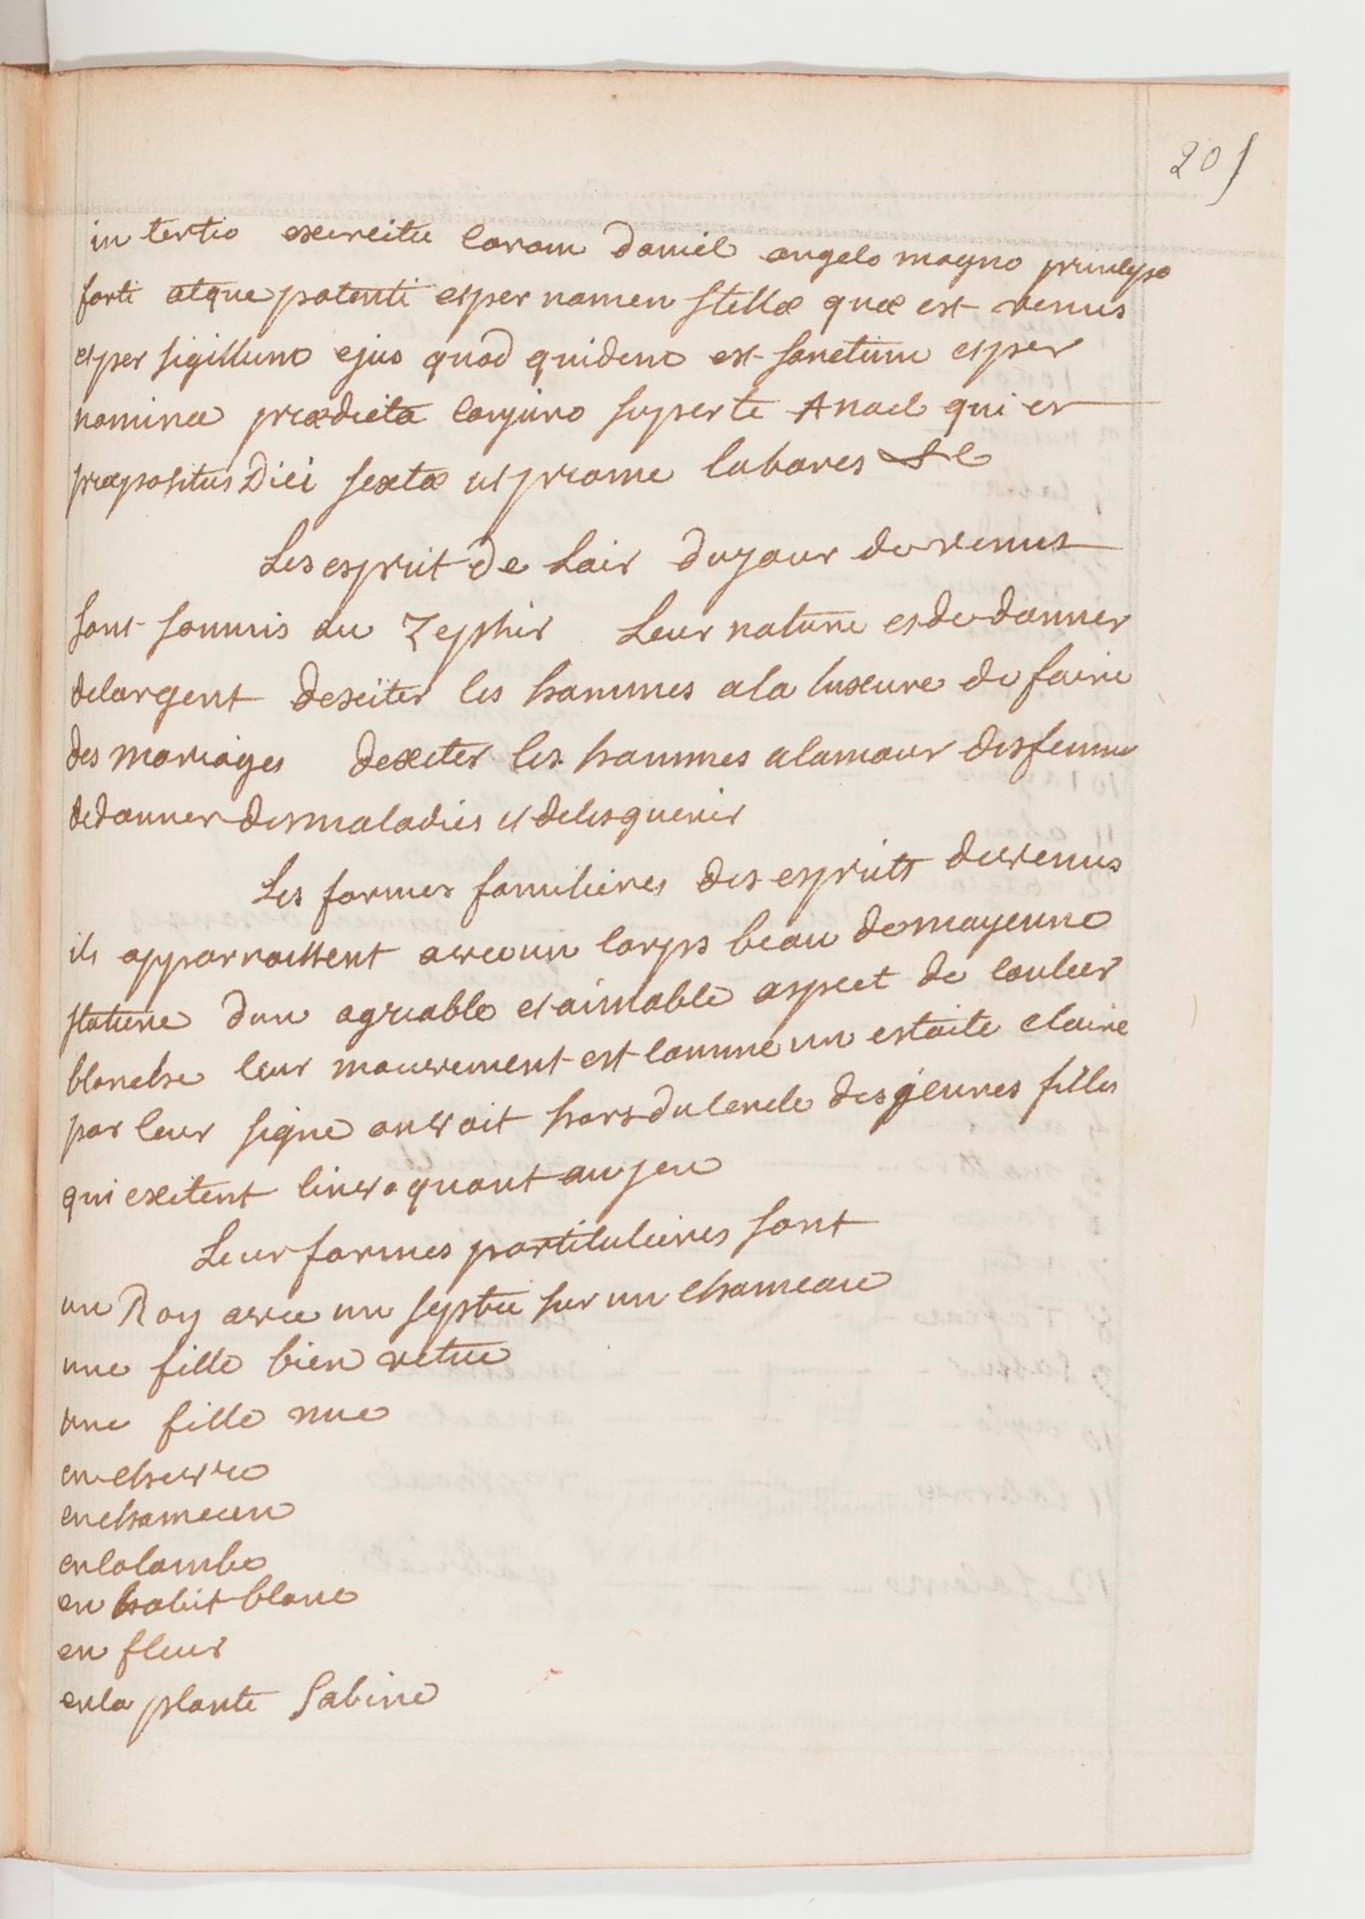 205
in tertio exercitu coram daniel angelo magno principe
forti atque potenti et per nomen stellæ quæ est venus
et per sigillum ejus quod quidem est sanctum et per
nomina prædicta conjuro super te Anael qui es
præpositus Diei sextæ ut pro me labores &c
Les esprit de Lair du jour de venus
sont soumis au Zephir Leur nature es de donner
de largent dexciter les hommes a la luxure de faire
des mariages dexciter les hommes a lamour des femme
de donner des maladies et de les guerir
Les formes familieres des esprits de venus
ils apparroissent avec un corps beau de moyenne
stature dun agreable et aimable aspect de couleur
blanche leur mouvement est comme un estoile claire
par leur signe on voit hors du cercle des jeunes filles
qui exitent linvoquant au jeu
Leur formes particulieres sont
un Roy avec un septre sur un chameau
une fille bien vetue
une fille nue
en chevre
en chameau
en colombe
en habit blanc
en fleur
en la plante Sabine